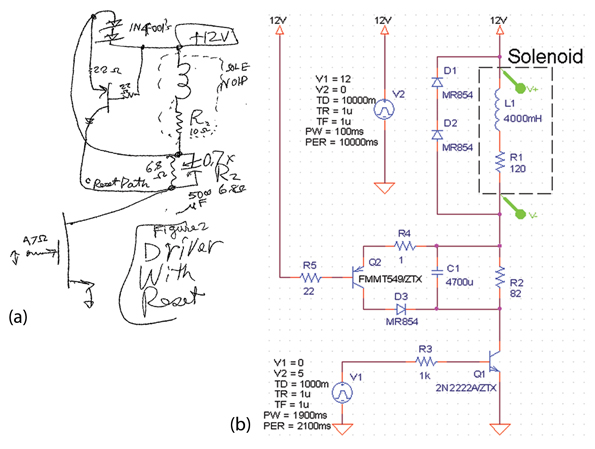 1N4001's
+12V
22Ω
R2
10Ω
68
Ω
0.7x
R2
Reset Path
500
µF
6.8Ω
47Ω
Figure 2
Driver
With
Reset
(a)
12V
12V
12V
Solenoid
V1 = 12
V2 = 0
TD = 10000m
TR = 1u
TF = 1u
PW = 100ms
PER = 10000ms
V2
D1
MR854
D2
MR854
V+
L1
4000mH
R1
120
V-
R4
1
Q2
FMMT549/ZTX
R5
22
C1
4700u
R2
82
D3
MR854
V1 = 0
V2 = 5
TD = 1000m
TR = 1u
TF = 1u
PW = 1900ms
PER = 2100ms
V1
R3
1k
Q1
2N2222A/ZTX
(b)